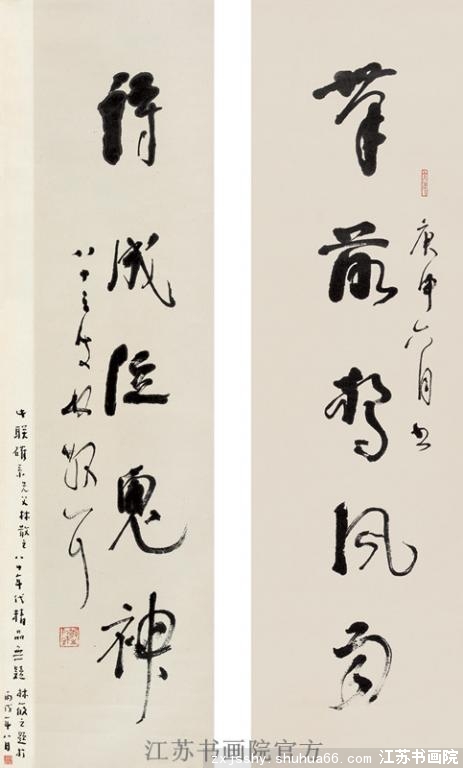 笔落惊风雨
庚申六月书
诗成泣鬼神
八十三叟林散耳
此联确系先父林散之八十年代精品无疑 林筱之题于
丙戌年八月
江苏书画院官方
zxjsshy.shuhua66.com/江苏书画院